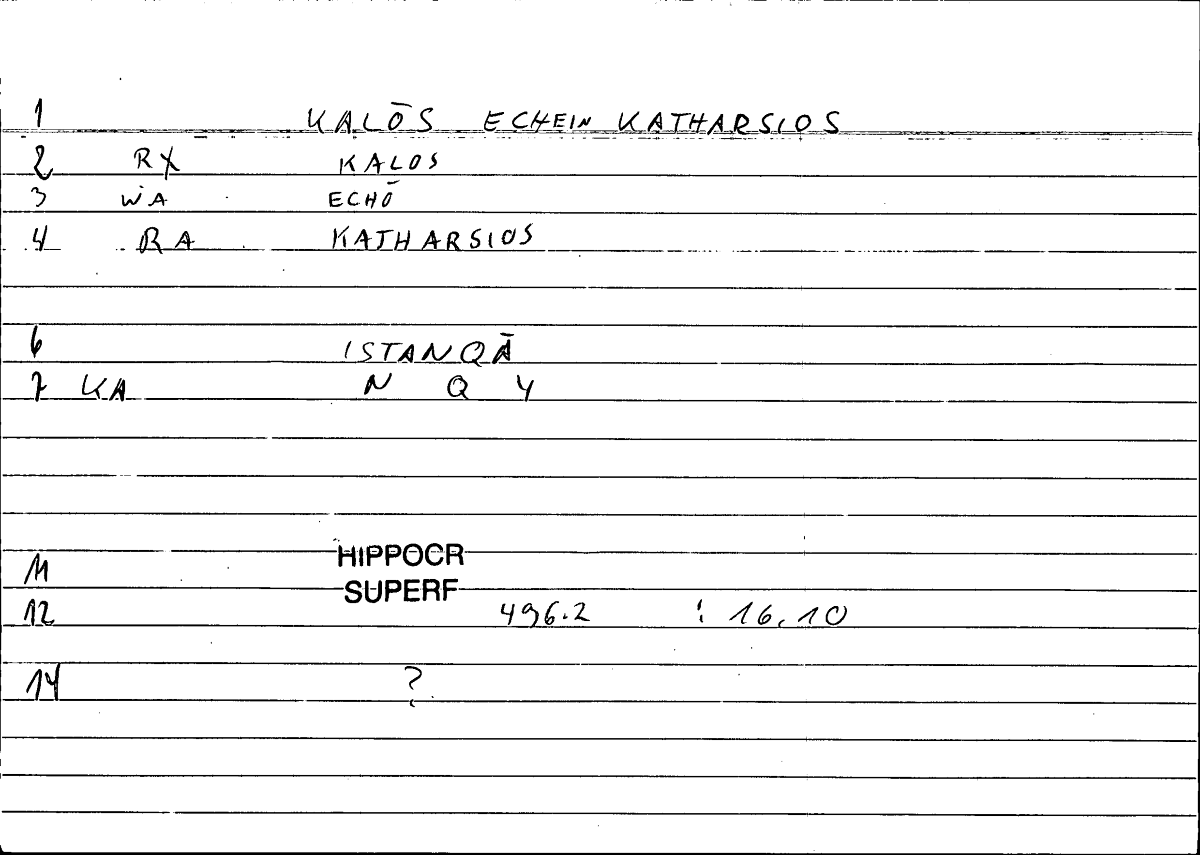 1 KALŌS ECHEIN KATHARSIOS
2 RX KALOS
3 WA ECHŌ
4 RA KATHARSIOS
6 ISTANQĀ
7 KA N Q Y
11 HIPPOCR
SUPERF
12 496.2 : 16.10
14 ?